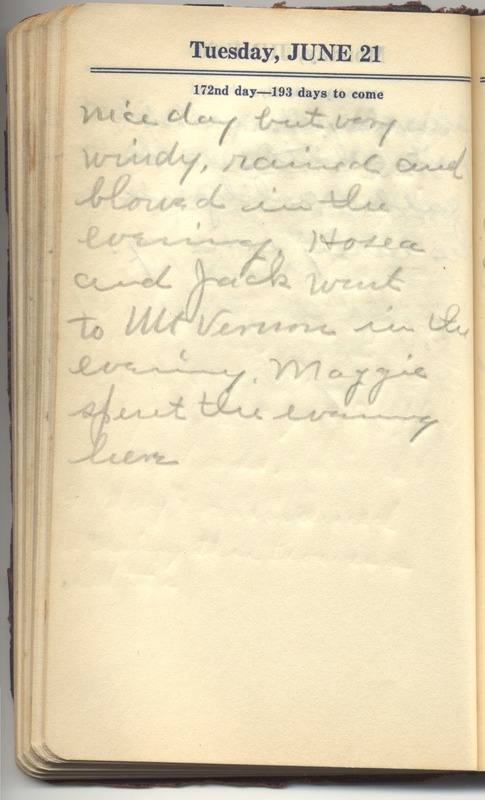 Tuesday, JUNE 21
172nd day—193 days to come
nice day but very
windy, rained and
blowed in the
evening. Hosea
and Jack went
to Mt Vernon in the
evening. Maggie
spent the evening
here